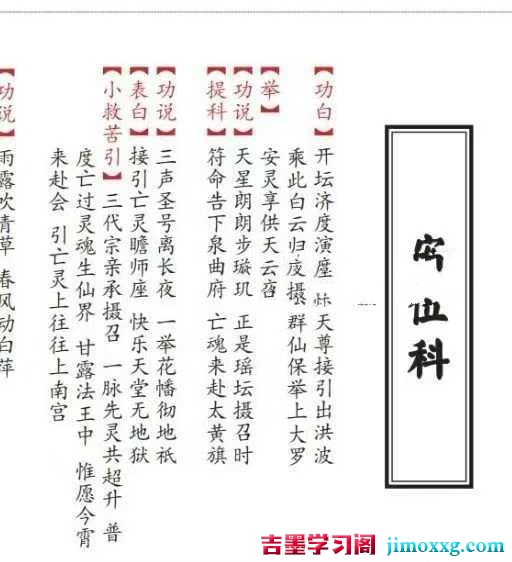 科
【功白】开坛济度演 天尊接引出洪波
乘此白云归 摄 群仙保举上大罗
【举】安灵享供天云
【功说】天星朗朗步璇玑 正是瑶坛摄召时
【提科】符命告下泉曲府 亡魂来赴太黄旗
【功说】三声圣号离长夜 一举花幡彻地祇
【表白】接引亡灵瞻师座 快乐天堂无地狱
【小救苦引】三代宗亲承摄召 一脉先灵共超升 普
度亡过灵魂生仙界 甘露法王中 惟愿今霄
来赴会 引亡灵上往往上南宫
【功说】雨露吹青草 春风动白萍
吉墨学习阁 jimoxxg.com